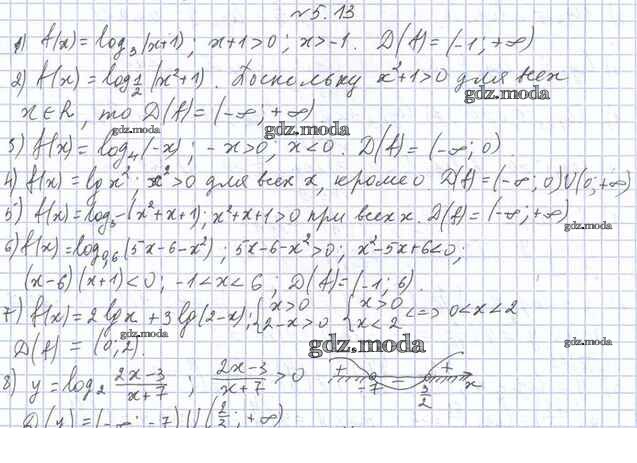 №5.13
1) f(x) = log₃(x+1); x+1>0; x>-1. D(f) = (-1; +∞)
2) f(x) = log_{1/2}(x²+1). Поскольку x²+1>0 для всех
x∈R, то D(f) = (-∞; +∞)
gdz.moda gdz.moda
3) f(x) = log₄(-x); -x>0; x<0. D(f) = (-∞; 0)
gdz.moda
4) f(x) = lg x²; x²>0 для всех x, кроме 0 D(f) = (-∞; 0)U(0; +∞)
5) f(x) = log₃-(x²+x+1); x²+x+1>0 при всех x. D(f) = (-∞; +∞)
gdz.moda
6) f(x) = log_{0,6}(5x-6-x²); 5x-6-x²>0; x²-5x+6<0;
(x-6)(x+1)<0; -1<x<6; D(f) = (-1; 6).
7) f(x) = 2 lg x + 3 lg(2-x); {x>0 2-x>0 {x>0 x<2 <=> 0<x<2
D(f) = (0; 2).
gdz.moda gdz.moda
8) y = log₂ (2x-3)/(x+7); (2x-3)/(x+7) > 0 + -7 - 3/2 + x
D(y) = (-∞; -7)U(3/2; +∞)
gdz.moda gdz.moda